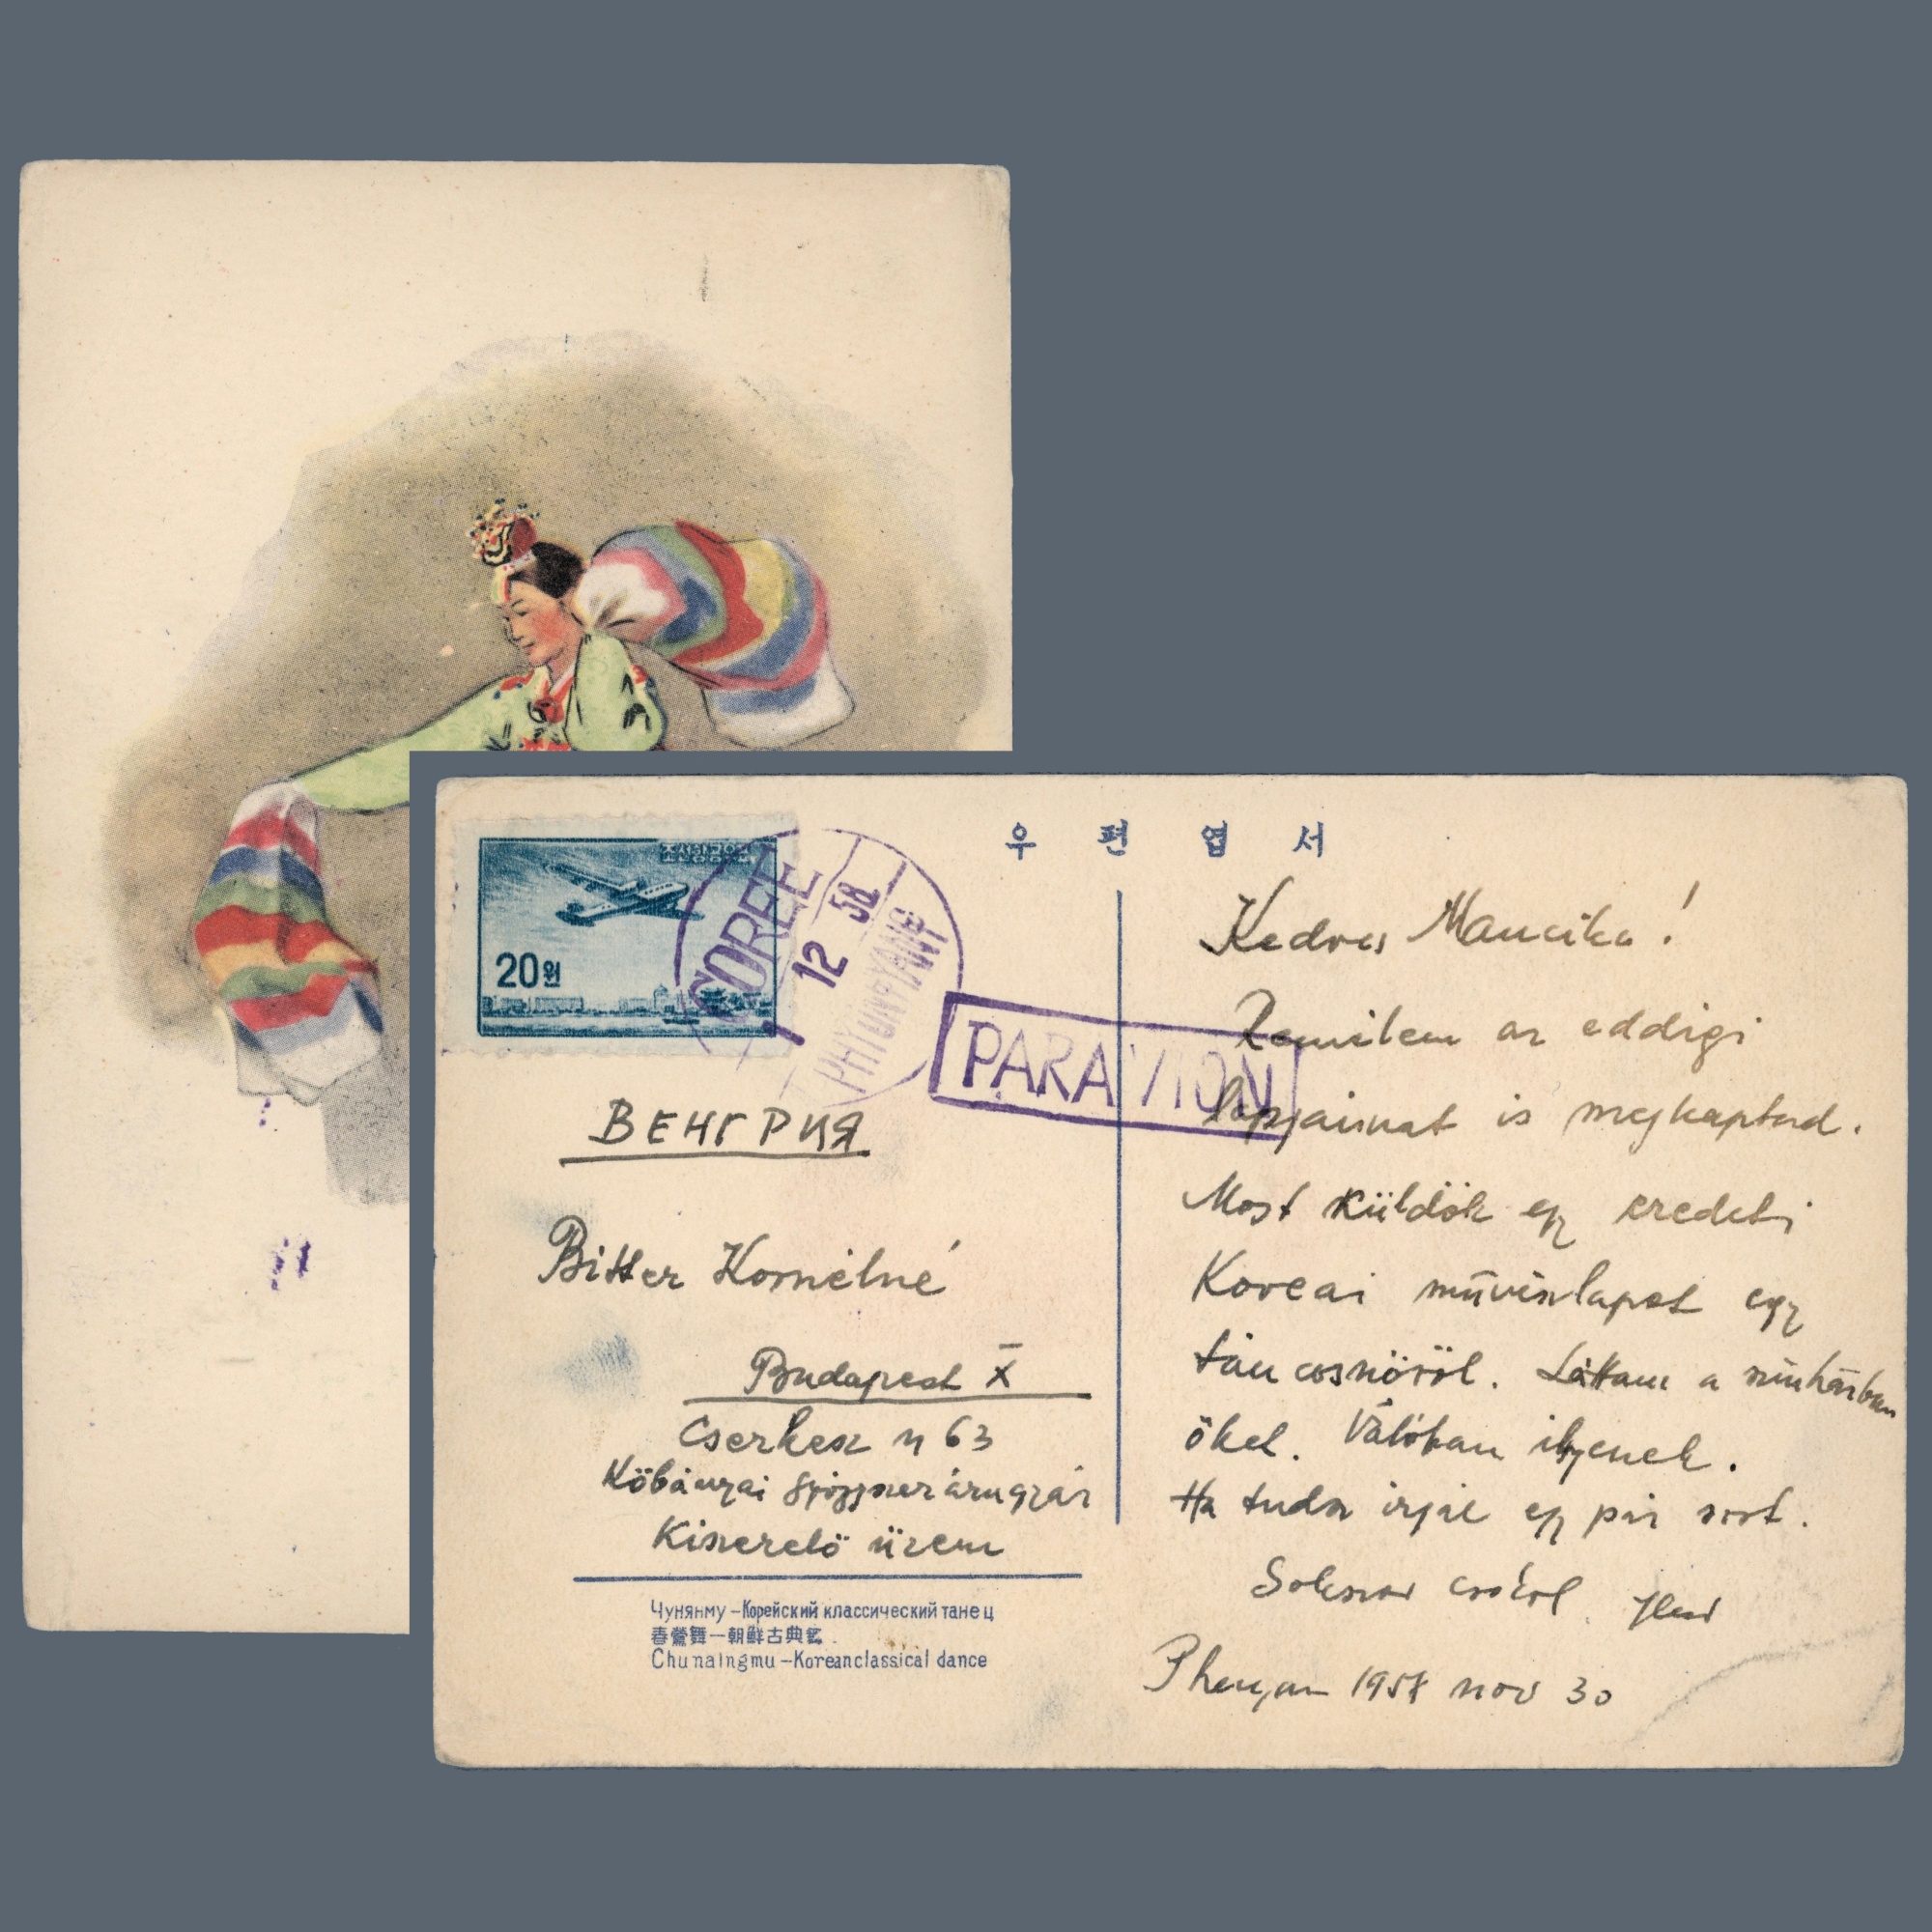 우편엽서
20원
COREE
12 58
PHYONGYANG
PAR AVION
ВЕНГРИЯ
Bitter Kornélné
Budapest X
Cserkesz u 63
Köbányai Gyógyszerárugyár
Kiszerelö üzem
Чунянму – Корейский классический танец
春鶯舞 — 朝鮮古典
Chunaingmu – Korean classical dance
Kedves Mancika!
Remélem az eddigi
lapjaimat is megkaptad.
Most küldök egy eredeti
Koreai müvészlapot egy
táncosnöröl. Láttam a szinházban
öket. Valóban ilyenek.
Ha tudsz irjál egy pár sort.
Sokszor csókol
1958 nov 30